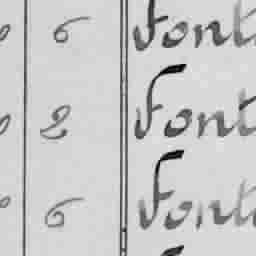 6 Font
2 Font
6 Font